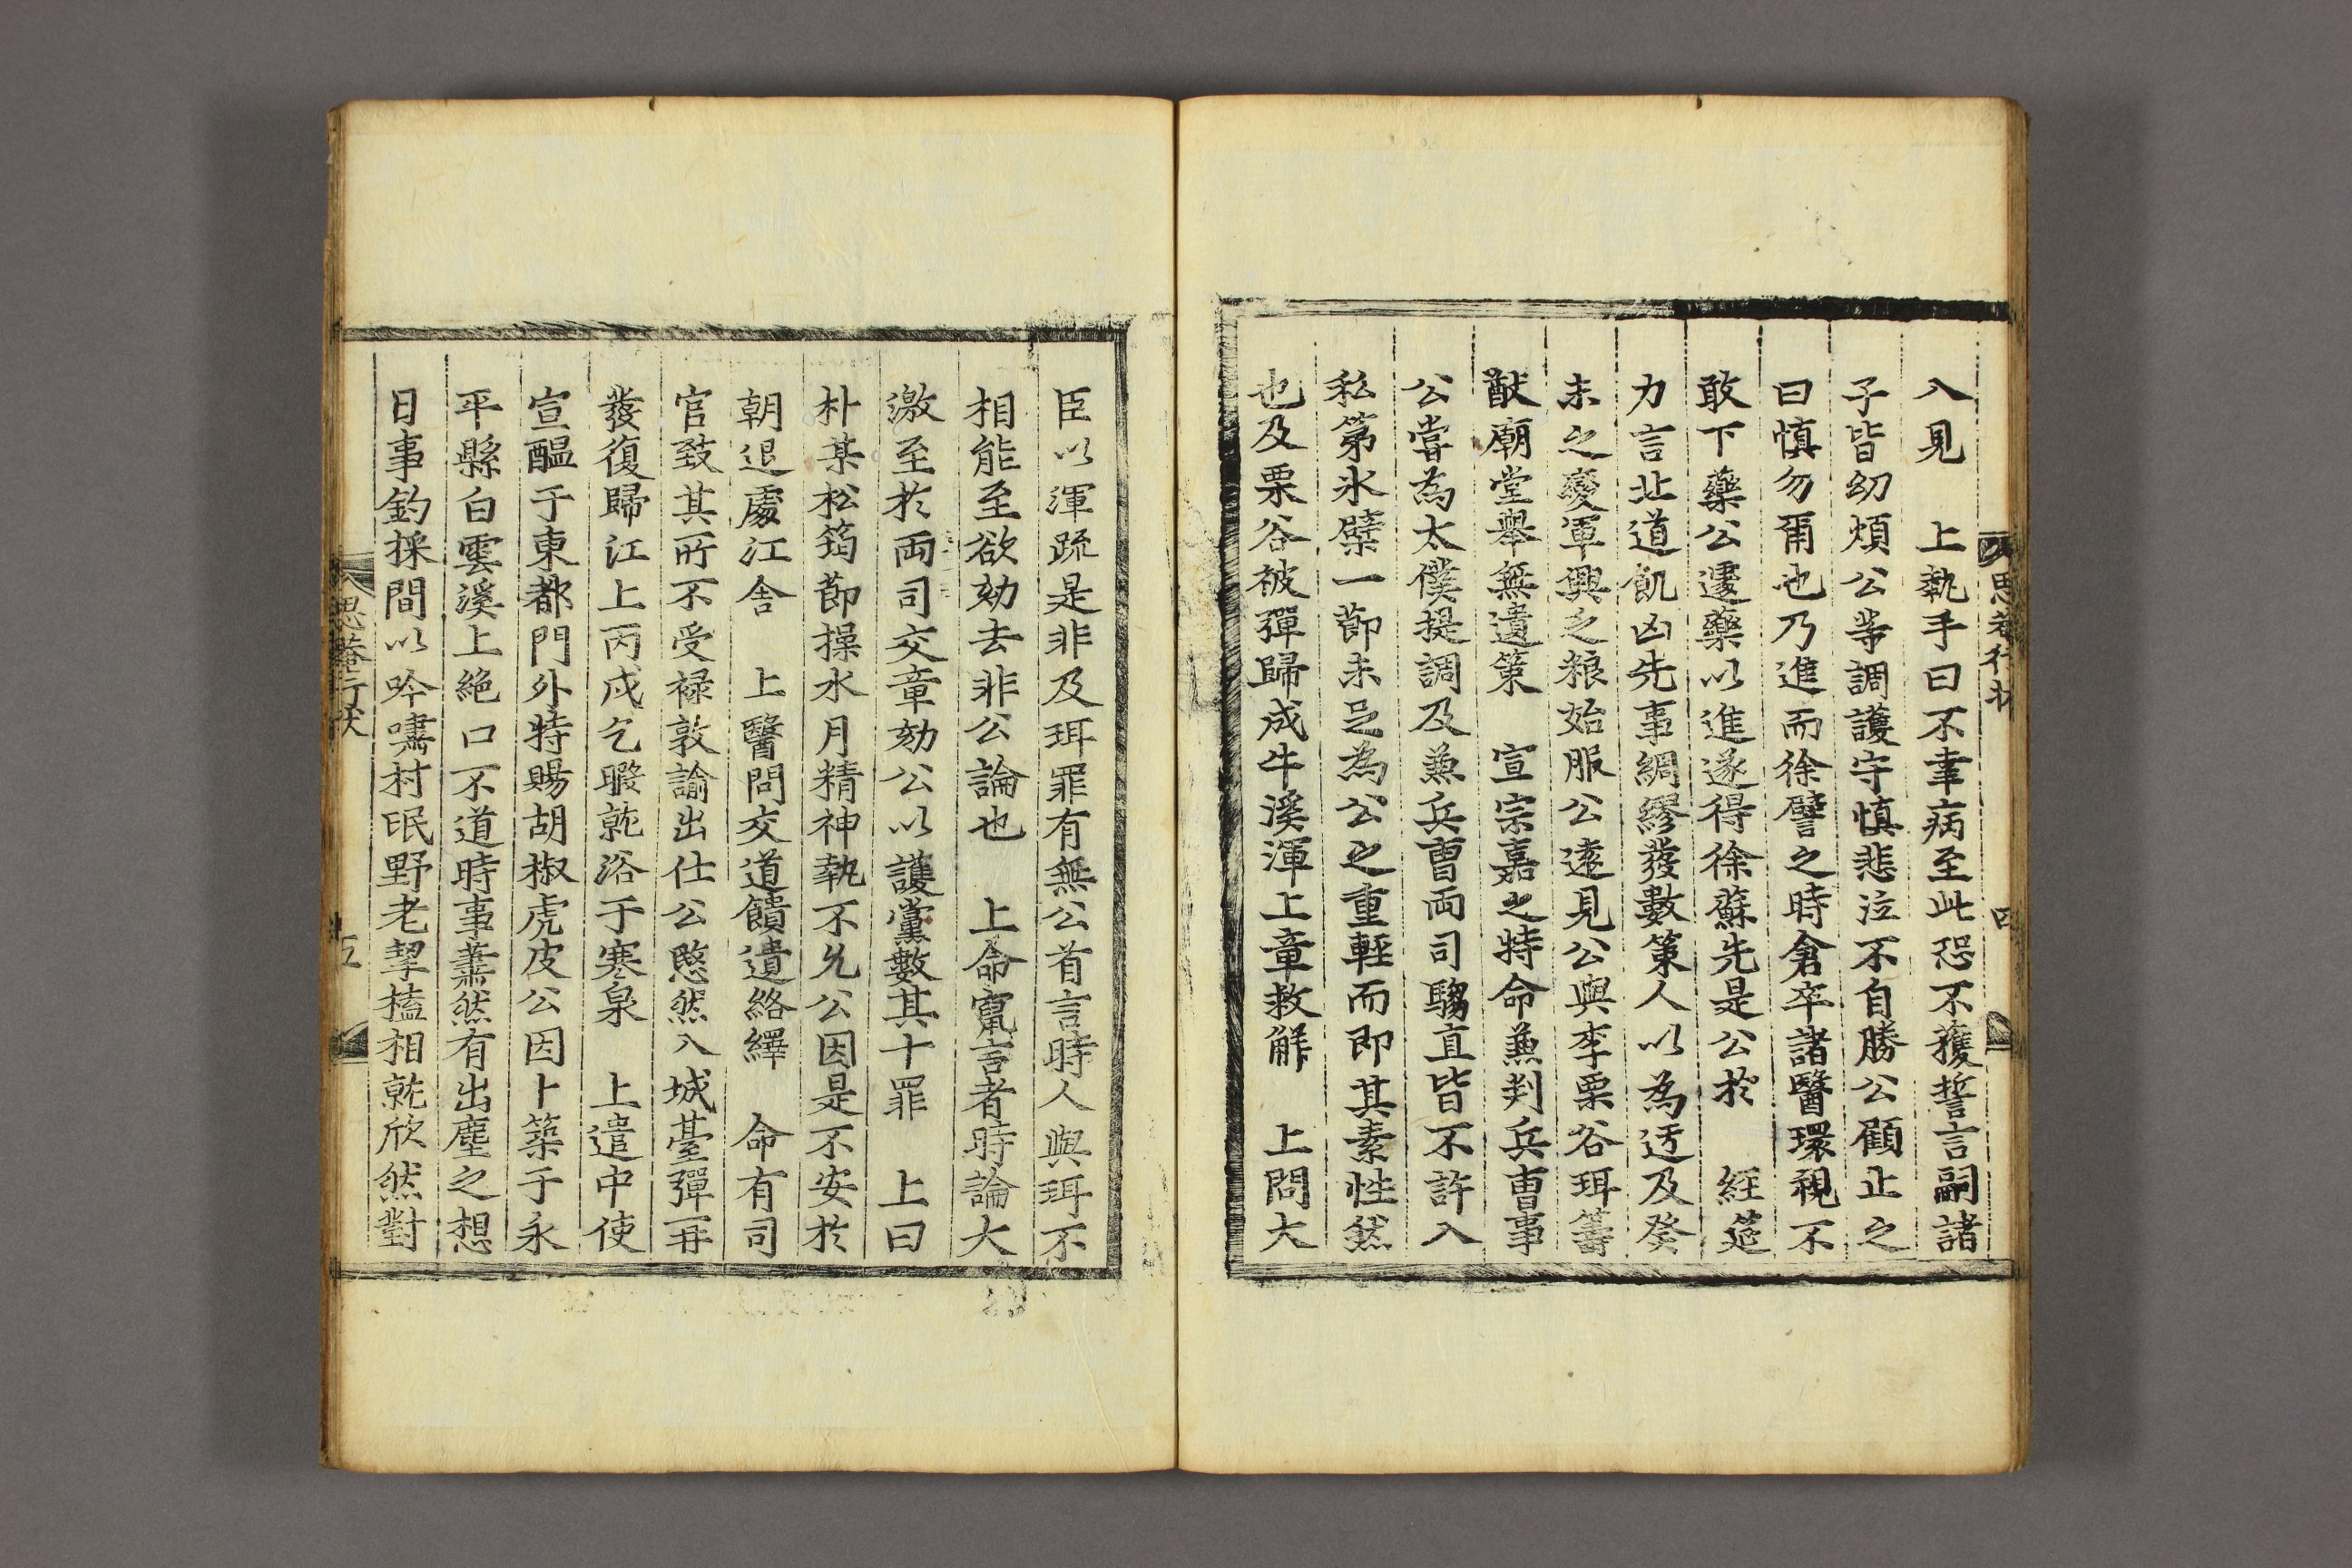 思菴行狀
四
入見　上執手曰不幸病至此恐不獲誓言嗣諸
子皆幼煩公等調護守慎悲泣不自勝公顧止之
曰慎勿爾也乃進而徐譬之時倉卒諸醫環視不
敢下藥公遽藥以進遂得徐蘇先是公於　經筵
力言北道飢凶先事綢繆發數策人以為迂及癸
未之變軍興之粮始服公遠見公與李栗谷珥籌
猷廟堂舉無遺策　宣宗嘉之特命兼判兵曹事
公嘗為太僕提調及兼兵曹両司騶直皆不許入
私第氷檗一節未足為公之重輕而即其素性然
也及栗谷被彈歸成牛溪渾上章救解　上問大
臣以渾疏是非及珥罪有無公首言時人與珥不
相能至欲劾去非公論也　上命竄言者時論大
激至於両司交章劾公以護黨數其十罪　上曰
朴某松筠節操水月精神執不允公因是不安於
朝退處江舍　上醫問交道饋遺絡繹　命有司
官致其所不受祿敦諭出仕公愍然入城臺彈再
發復歸江上丙戌乞暇乾浴于寒泉　上遣中使
宣醞于東都門外特賜胡椒虎皮公因卜築于永
平縣白雲溪上絶口不道時事蕭然有出塵之想
日事釣採間以吟嘯村氓野老挈榼相就欣然對
思菴行狀
五